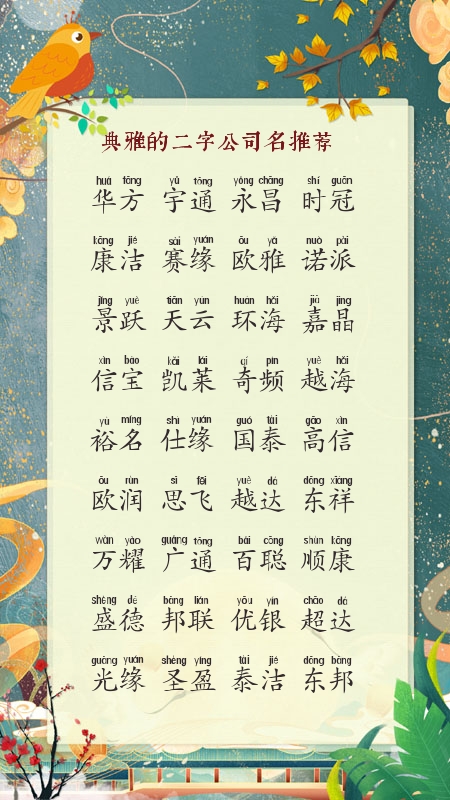 典雅的二字公司名推荐
huá fāng yǔ tōng yóng chāng shí guān
华方 宇通 永昌 时冠
kāng jié sài yuán ōu yǎ nuò pài
康洁 赛缘 欧雅 诺派
jǐng yuè tiān yún huán hǎi jiā jīng
景跃 天云 环海 嘉晶
xìn bǎo kǎi lái qí pín yuè hǎi
信宝 凯莱 奇频 越海
yù míng shì yuán guó tài gāo xìn
裕名 仕缘 国泰 高信
ōu rùn sī fēi yuè dá dōng xiáng
欧润 思飞 越达 东祥
wàn yào guǎng tōng bǎi cōng shùn kāng
万耀 广通 百聪 顺康
shèng dé bāng lián yōu yín chāo dá
盛德 邦联 优银 超达
guāng yuán shèng yíng tài jié dōng bāng
光缘 圣盈 泰洁 东邦